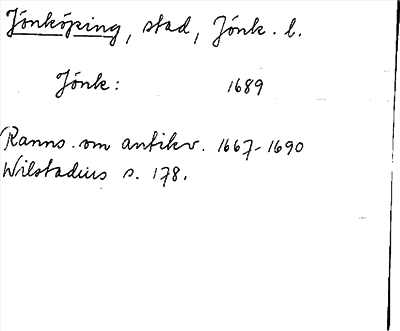 Jönköping, stad, Jönk. l.
Jönk: 1689
Ranns. om antikv. 1667-1690
Wilstadius s. 178.